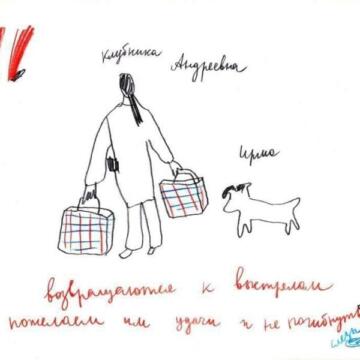 клубника Андреевна
Ирма
возвращаются к выстрелам
пожелаем им удачи и не погибнуть